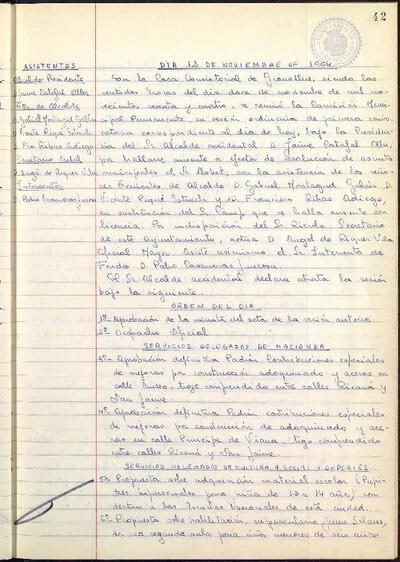 42
ASISTENTES
DIA 12 DE NOVIEMBRE DE 1964
Alcalde Presidente
D. Jaime Catafal Oller
Ttes. de Alcalde
D. Gabriel Montagud
D. Vicente Piqué Estruela
D. Fco. Ribas Adiego
Secretario Acctal.
D. Angel de Roques Vila
Interventor
D. Pedro Casanovas Juncosa
En la Casa Consistorial de Granollers, siendo las
veintidos horas del dia doce de noviembre de mil no-
vecientos sesenta y cuatro, se reunió la Comisión Muni-
cipal Permanente, en sesión ordinaria de primera convo-
catoria correspondiente al dia de hoy, bajo la Presiden-
cia del Sr. Alcalde accidental D. Jaime Catafal Oller,
por hallarse ausente a efecto de resolución de asuntos
municipales el Sr. Llobet, con la asistencia de los seño-
res Tenientes de Alcalde D. Gabriel Montagud D.
Vicente Piqué Estruela y D. Francisco Ribas Adiego,
en sustitución del Sr. Camp que se halla ausente con
licencia. Por indisposición del Sr. Ricola Secretario
de este Ayuntamiento, actúa D. Angel de Roques Vila
Oficial Mayor. Asiste asimismo el Sr. Interventor de
Fondos D. Pedro Casanovas Juncosa.
El Sr. Alcalde accidental declara abierta la sesión
bajo la siguiente
ORDEN DEL DIA
1º- Aprobación de la minuta del acta de la sesión anterior
2º- Despacho Oficial
SERVICIOS DELEGADOS DE HACIENDA
3º- Aprobación definitiva Padrón Contribuciones especiales
de mejoras por construcción adoquinado y aceras en
calle Museo. trozo comprendido entre calles Ricomá y
San Jaime.
4º- Aprobación definitiva Padrón contribuciones especiales
de mejoras por construcción de adoquinado y ace-
ras en calle Principe de Viana. trozo comprendido
entre calles Ricomá y San Jaime.
SERVICIOS DELEGADOS DE CULTURA A. SOCIAL Y DEPORTES
5º- Propuesta sobre adquisición material escolar (Pupi-
tres bipersonales para niños de 10 a 14 años) con
destino a las Escuelas Nacionales de esta ciudad.
6º- Propuesta sobre habilitación, en parvulario
de una segunda aula para niños menores de seis años.